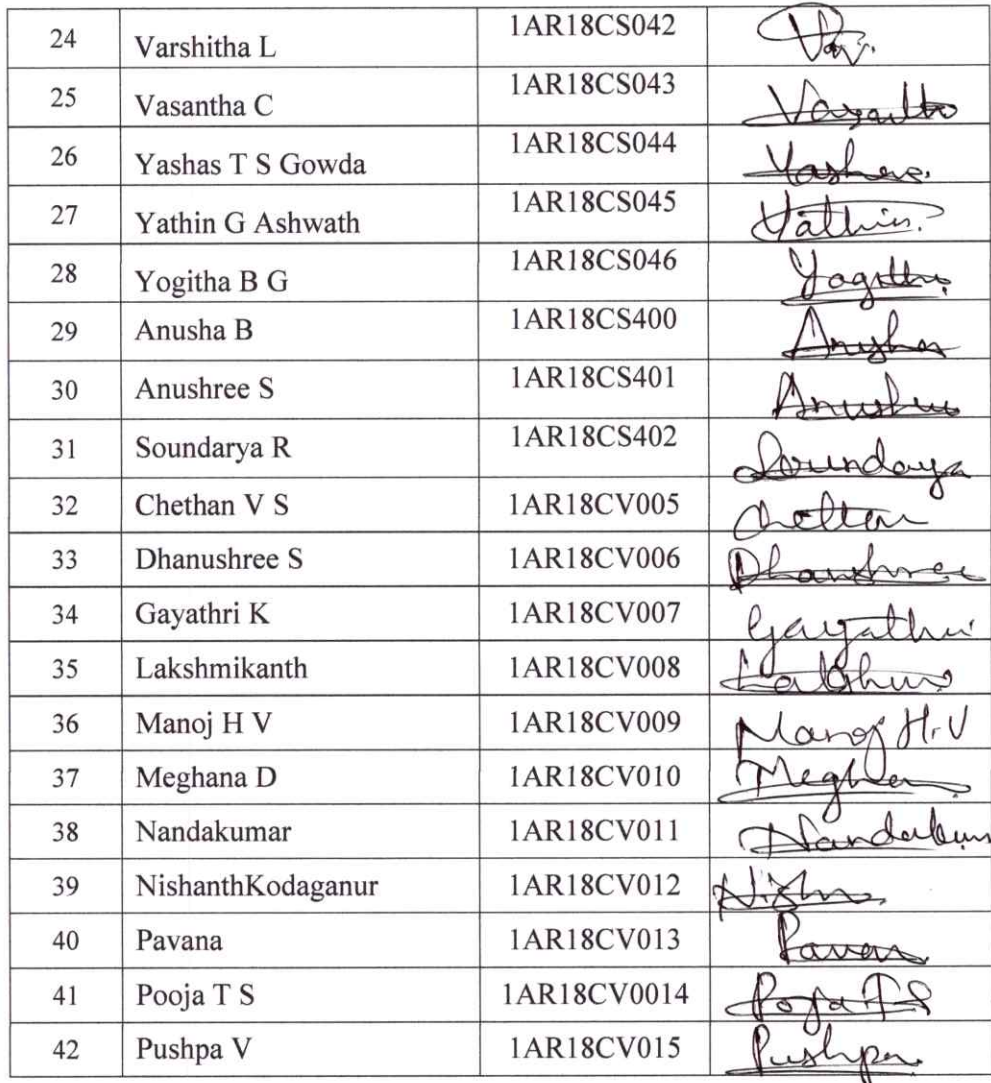 24 Varshitha L 1AR18CS042
25 Vasantha C 1AR18CS043 Vasantha
26 Yashas T S Gowda 1AR18CS044 Yashas.
27 Yathin G Ashwath 1AR18CS045 Yathin
28 Yogitha B G 1AR18CS046 Yogitha
29 Anusha B 1AR18CS400 Anusha
30 Anushree S 1AR18CS401
31 Soundarya R 1AR18CS402
32 Chethan V S 1AR18CV005 Chethan
33 Dhanushree S 1AR18CV006 Dhanushree
34 Gayathri K 1AR18CV007 Gayathri
35 Lakshmikanth 1AR18CV008
36 Manoj H V 1AR18CV009 Manoj H.V
37 Meghana D 1AR18CV010
38 Nandakumar 1AR18CV011
39 NishanthKodaganur 1AR18CV012
40 Pavana 1AR18CV013
41 Pooja T S 1AR18CV0014 Pooja T S
42 Pushpa V 1AR18CV015 Pushpa